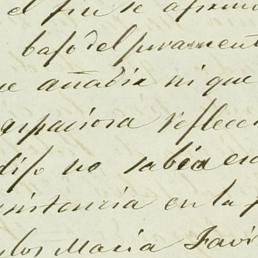 el fin se afirm
bajo del jurament
ue añadir ni que
espaciosa reflecc
dijo no sabia en
sistencia en la
los Maria Favi